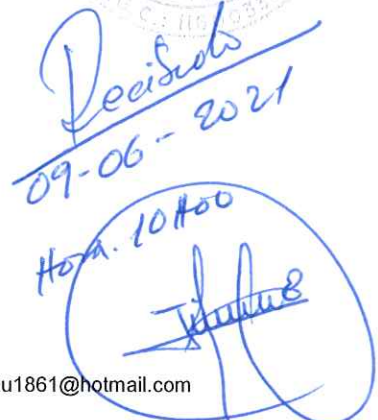 Recibido
09-06-2021
Hora. 10H00
u1861@hotmail.com